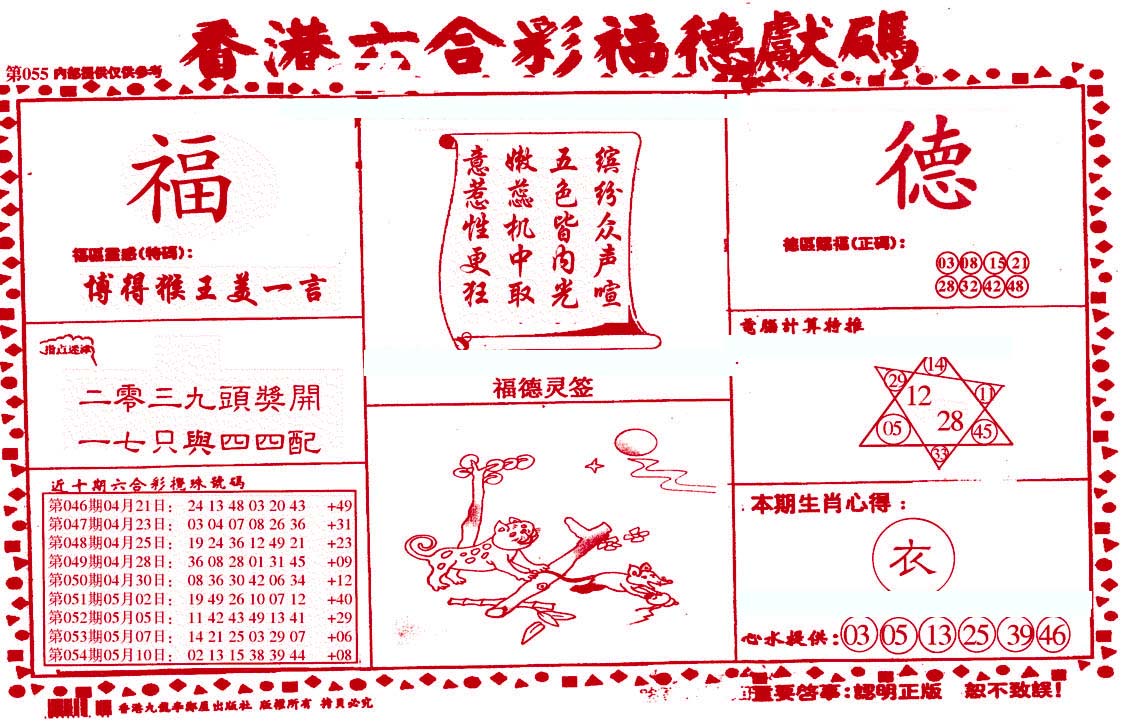 香港六合彩福德獻碼
第055 內部提供仅供參考
福
福區靈感(特碼):
博得猴王美一言
指点迷津
二零三九頭獎開
一七只與四四配
近十期六合彩攪珠號碼
第046期04月21日: 24 13 48 03 20 43 +49
第047期04月23日: 03 04 07 08 26 36 +31
第048期04月25日: 19 24 36 12 49 21 +23
第049期04月28日: 36 08 28 01 31 45 +09
第050期04月30日: 08 36 30 42 06 34 +12
第051期05月02日: 19 49 26 10 07 12 +40
第052期05月05日: 11 42 43 49 13 41 +29
第053期05月07日: 14 21 25 03 29 07 +06
第054期05月10日: 02 13 15 38 39 44 +08
缤纷众声喧
五色皆内光
嫩蕊机中取
意惹性更狂
福德灵签
德
德區賜福(正碼):
03 08 15 21
28 32 42 48
電腦計算特推
14
29 12 11
05 28 45
33
本期生肖心得:
衣
心水提供: 03 05 13 25 39 46
香港九龍 出版社 版權所有 持頁必究
重要啓事:認明正版 恕不致誤!